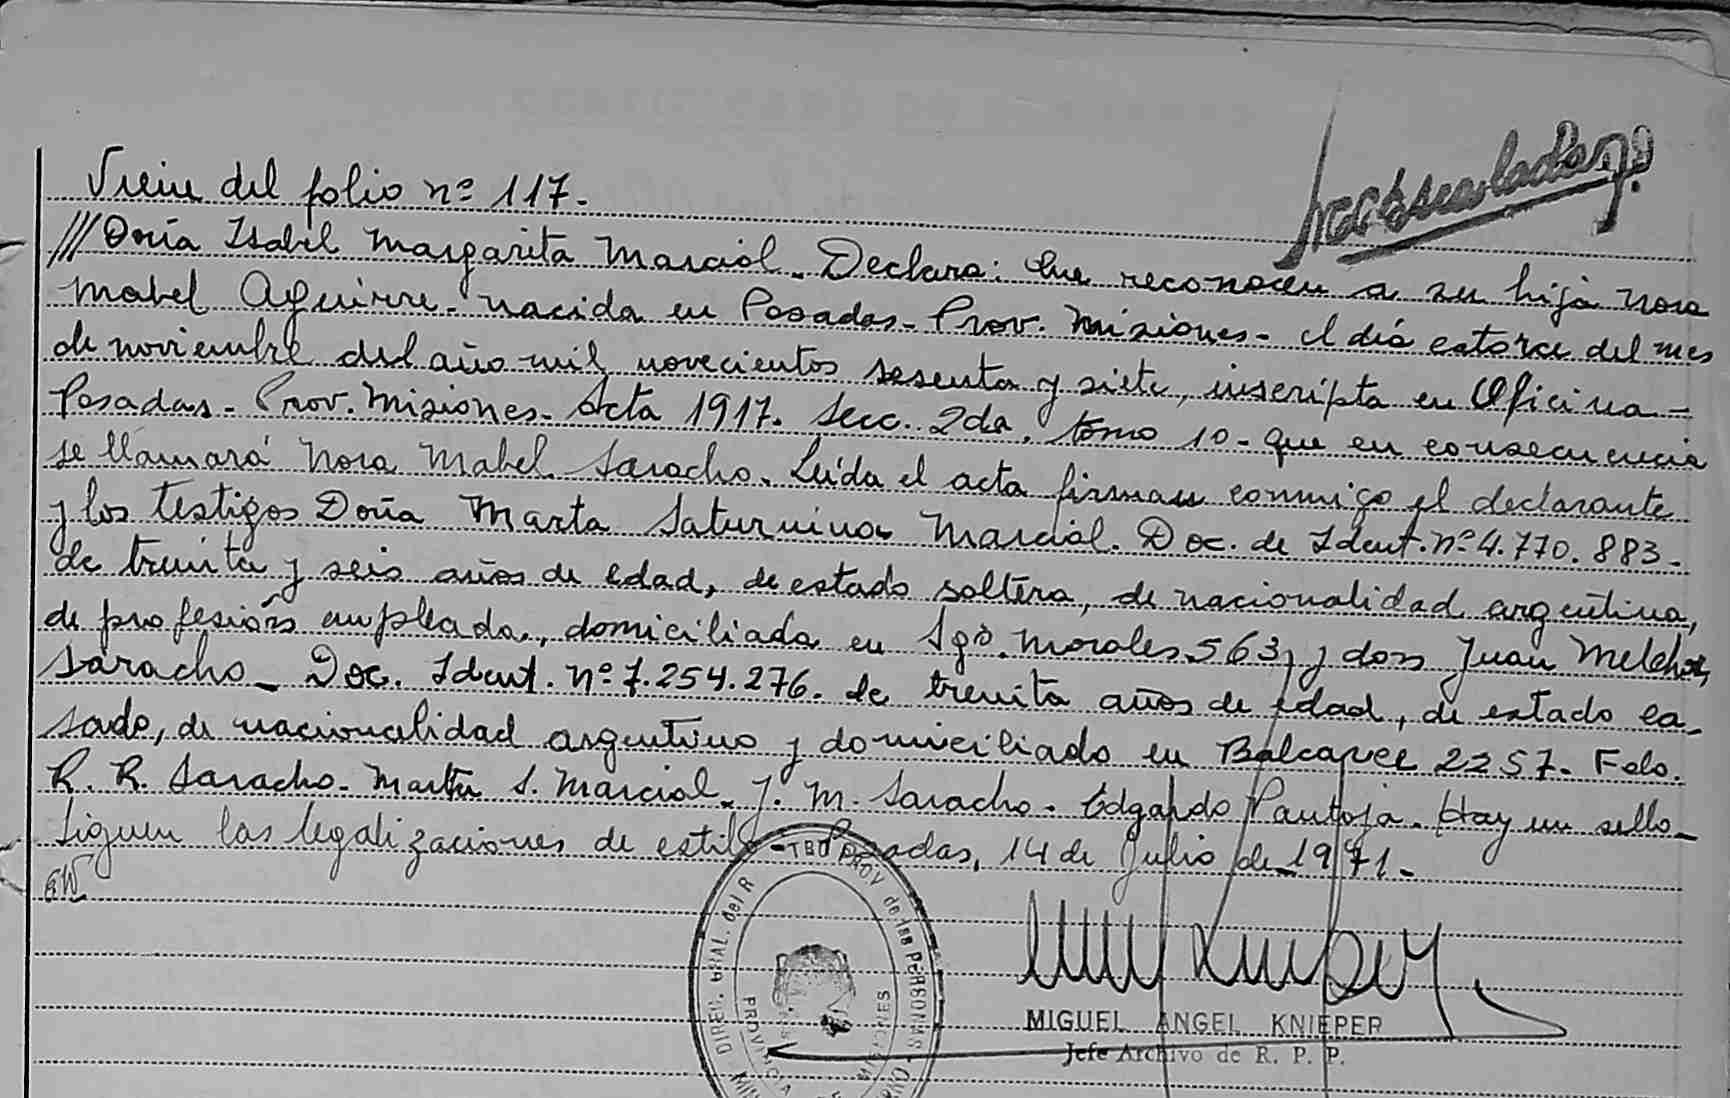 Viene del folio nº 117.-
///Doña Isabel Margarita Marcial. Declara: Que reconocen a su hija Nora
Mabel Aguirre- nacida en Posadas- Prov. Misiones- el día catorce del mes
de noviembre del año mil novecientos sesenta y siete, inscripta en Oficina-
Posadas- Prov. Misiones- Acta 1917. Secc. 2da, tomo 10- Que en consecuencia
se llamará Nora Mabel Saracho. Leída el acta firman conmigo el declarante
y los testigos Doña Marta Saturnina Marcial. Doc. de Ident. nº 4.770.883-
de treinta y seis años de edad, de estado soltera, de nacionalidad argentina,
de profesión empleada, domiciliada en Sgo. Morales 563, y don Juan Melchor
Saracho- Doc. Ident. nº 7.254.276. de treinta años de edad, de estado ca-
sado, de nacionalidad argentino y domiciliado en Balcarce 2257. Fdo.
R. R. Saracho- Marta S. Marcial- J. M. Saracho- Edgardo Pantoja. Hay un sello-
Siguen las legalizaciones de estilo- Posadas, 14 de Julio de 1971.-
DIREC. GRAL. del R PROV de las PERSONAS
PROVINCIA MISIONES
MIGUEL ANGEL KNIEPER
Jefe Archivo de R. P. P.